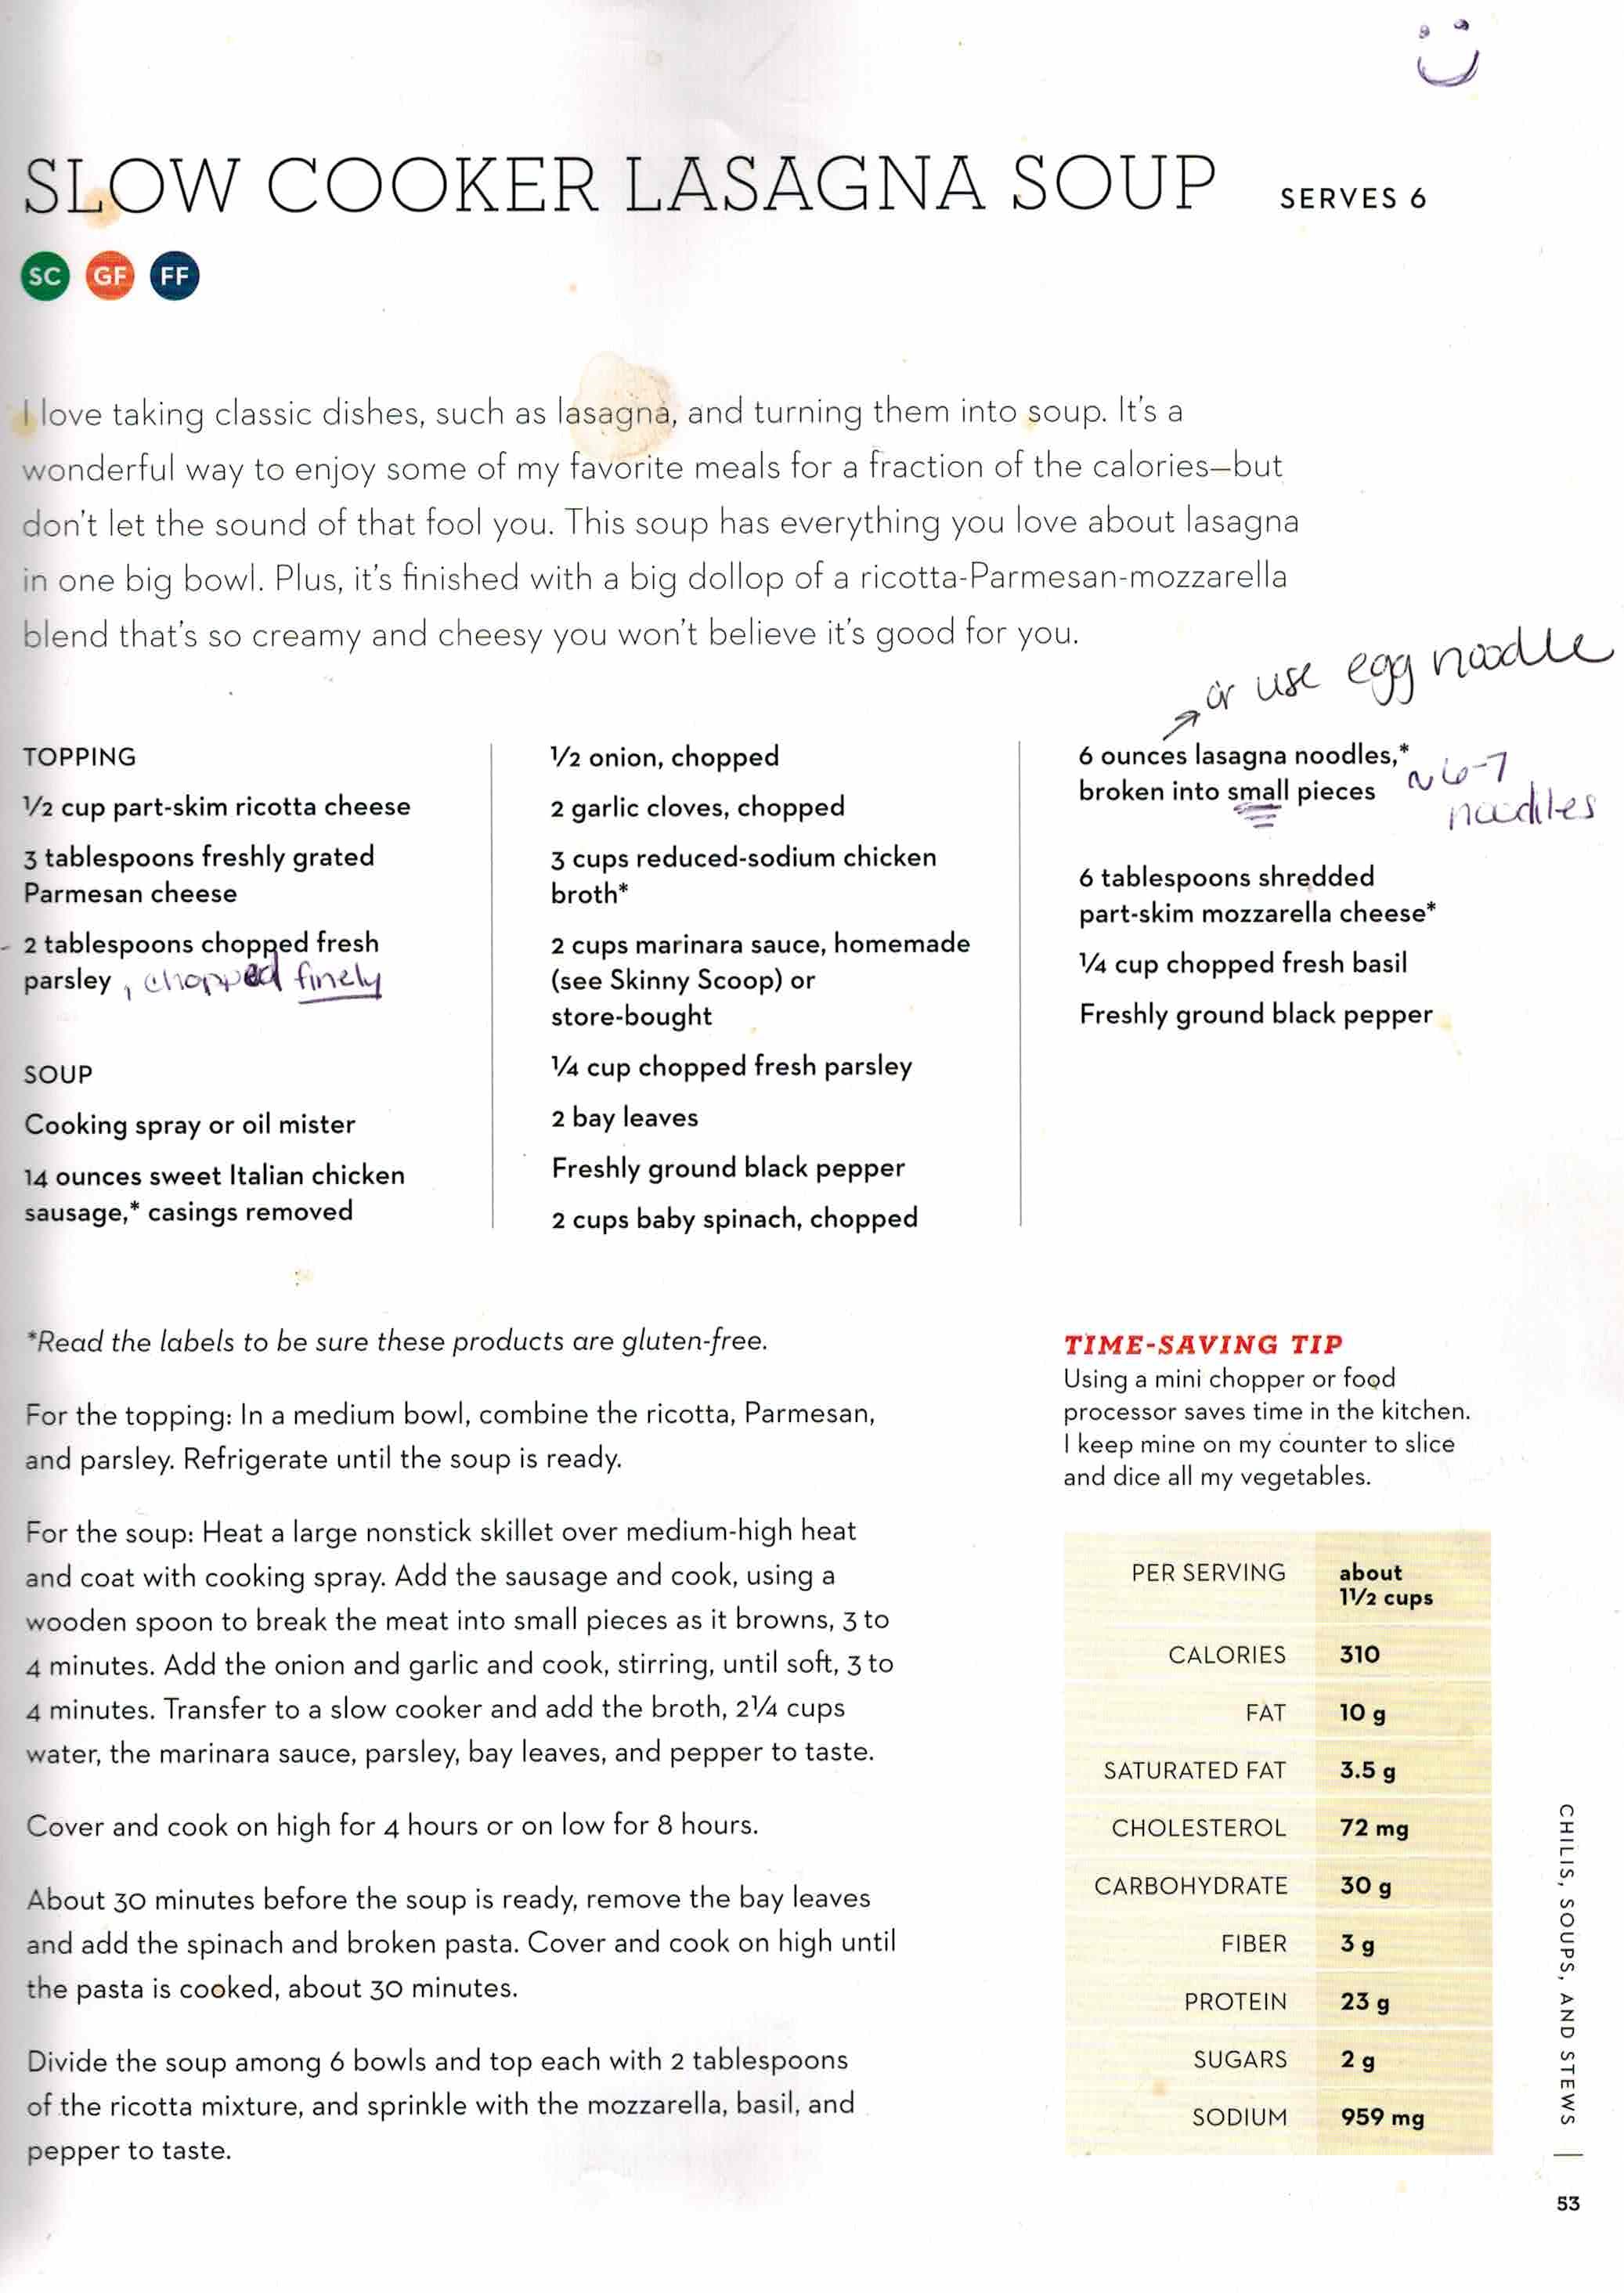 SLOW COOKER LASAGNA SOUP SERVES 6
SC GF FF
I love taking classic dishes, such as lasagna, and turning them into soup. It's a
wonderful way to enjoy some of my favorite meals for a fraction of the calories—but
don't let the sound of that fool you. This soup has everything you love about lasagna
in one big bowl. Plus, it's finished with a big dollop of a ricotta-Parmesan-mozzarella
blend that's so creamy and cheesy you won't believe it's good for you.
TOPPING
1/2 cup part-skim ricotta cheese
3 tablespoons freshly grated
Parmesan cheese
2 tablespoons chopped fresh
parsley, chopped finely
SOUP
Cooking spray or oil mister
14 ounces sweet Italian chicken
sausage,* casings removed
1/2 onion, chopped
2 garlic cloves, chopped
3 cups reduced-sodium chicken
broth*
2 cups marinara sauce, homemade
(see Skinny Scoop) or
store-bought
1/4 cup chopped fresh parsley
2 bay leaves
Freshly ground black pepper
2 cups baby spinach, chopped
or use egg noodle
6 ounces lasagna noodles,*
broken into small pieces
~ 6-7
noodles
6 tablespoons shredded
part-skim mozzarella cheese*
1/4 cup chopped fresh basil
Freshly ground black pepper
*Read the labels to be sure these products are gluten-free.
For the topping: In a medium bowl, combine the ricotta, Parmesan,
and parsley. Refrigerate until the soup is ready.
For the soup: Heat a large nonstick skillet over medium-high heat
and coat with cooking spray. Add the sausage and cook, using a
wooden spoon to break the meat into small pieces as it browns, 3 to
4 minutes. Add the onion and garlic and cook, stirring, until soft, 3 to
4 minutes. Transfer to a slow cooker and add the broth, 2 1/4 cups
water, the marinara sauce, parsley, bay leaves, and pepper to taste.
Cover and cook on high for 4 hours or on low for 8 hours.
About 30 minutes before the soup is ready, remove the bay leaves
and add the spinach and broken pasta. Cover and cook on high until
the pasta is cooked, about 30 minutes.
Divide the soup among 6 bowls and top each with 2 tablespoons
of the ricotta mixture, and sprinkle with the mozzarella, basil, and
pepper to taste.
TIME-SAVING TIP
Using a mini chopper or food
processor saves time in the kitchen.
I keep mine on my counter to slice
and dice all my vegetables.
PER SERVING about
1 1/2 cups
CALORIES 310
FAT 10 g
SATURATED FAT 3.5 g
CHOLESTEROL 72 mg
CARBOHYDRATE 30 g
FIBER 3 g
PROTEIN 23 g
SUGARS 2 g
SODIUM 959 mg
CHILIS, SOUPS, AND STEWS
53